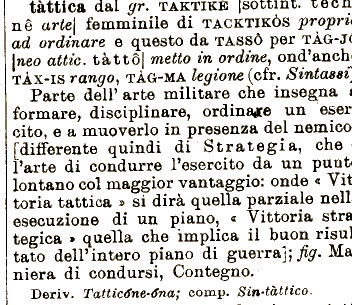 tàttica dal gr. TAKTIKÈ [sottint. tech
nê arte] femminile di TACKTIKÒS proprio
ad ordinare e questo da TASSÔ per TÀG-J
[neo attic. tàttô] metto in ordine, ond'anche
TÀX-IS rango, TÀG-MA legione (cfr. Sintassi
Parte dell'arte militare che insegna a
formare, disciplinare, ordinare un eser
cito, e a muoverlo in presenza del nemico
[differente quindi di Strategia, che
l'arte di condurre l'esercito da un punto
lontano col maggior vantaggio: onde « Vit
toria tattica » si dirà quella parziale nell
esecuzione di un piano, « Vittoria stra
tegica » quella che implica il buon risul
tato dell'intero piano di guerra]; fig. Ma
niera di condursi, Contegno.
Deriv. Tatticóne-óna; comp. Sin-tàttico.